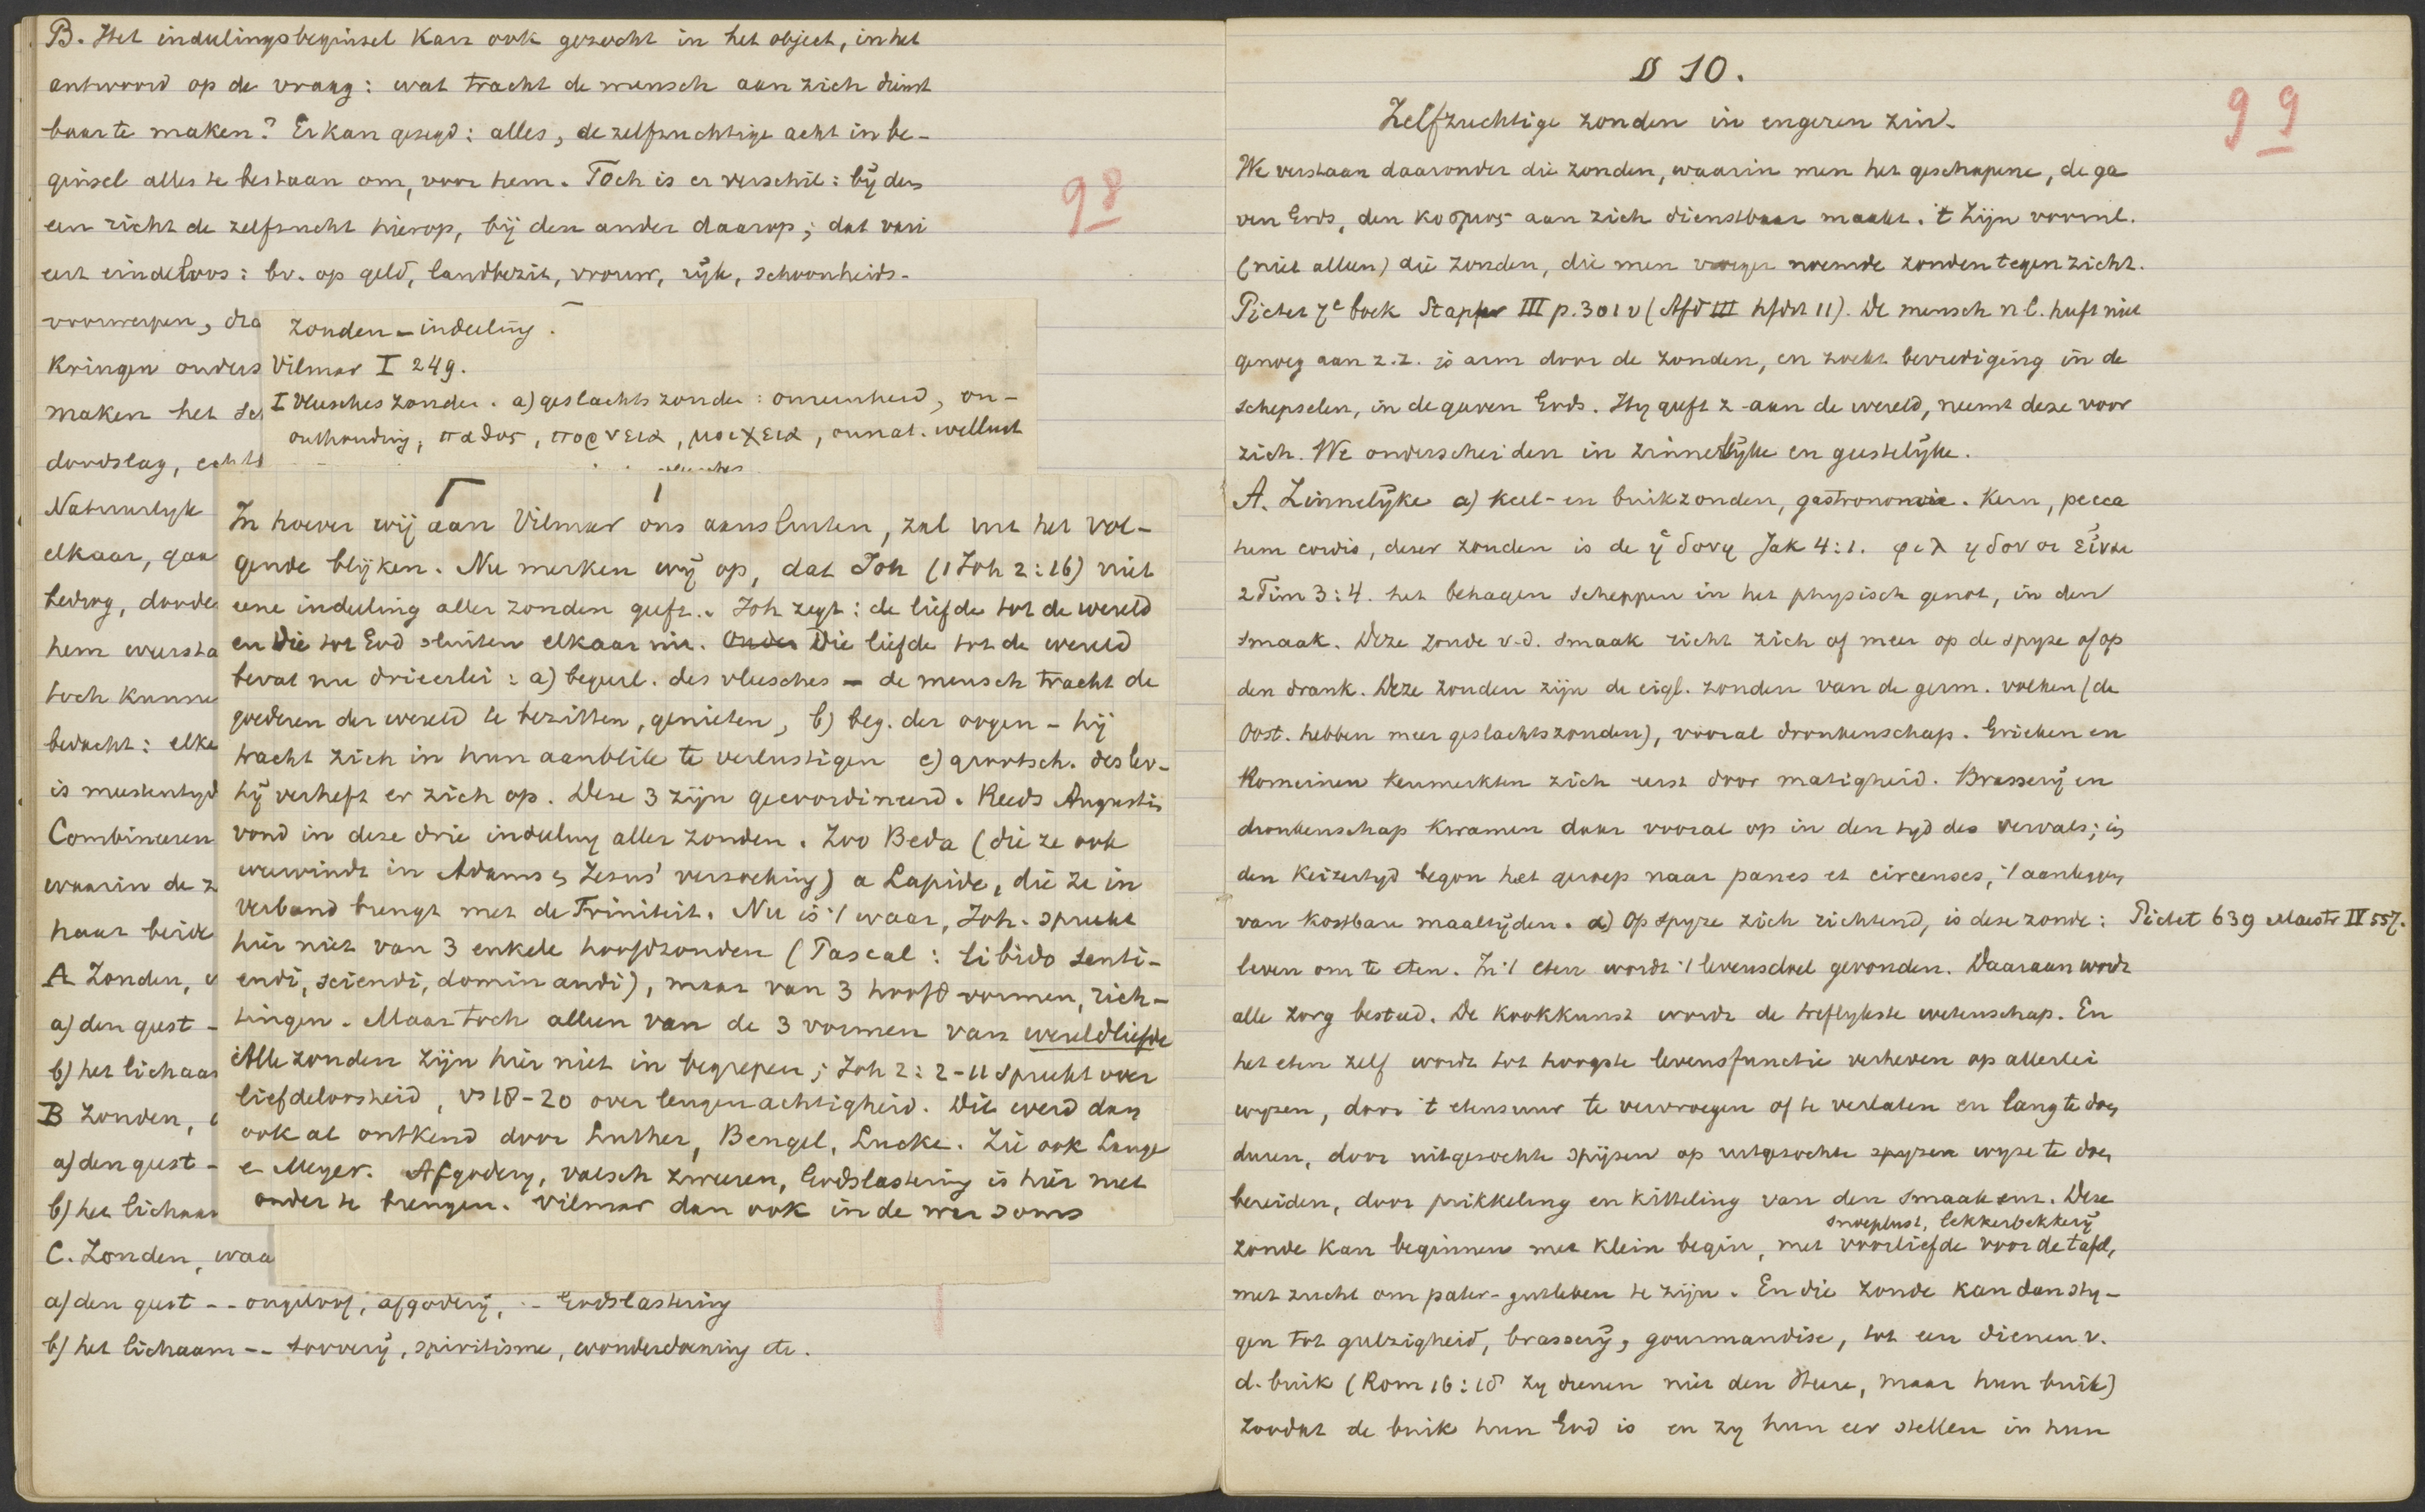 B. Het indeelingsbeginsel kan ook gezocht in het object, in het
antwoord op de vraag: wat tracht de mensch aan zich dienst
baar te maken? Er kan gezegd: alles, de zelfzuchtige acht in be-
ginsel alles te bestaan om, voor hem. Toch is er verschil: bij den
een richt de zelfzucht hierop, bij den ander daarop; dat vari
eert eindeloos: bv. op geld, landbezit, vrouw, rijk, schoonheids-
voorwerpen, dra
kringen onders
maken het sch
doodslag, echt
Natuurlijk
elkaar, gaa
bedrog, doode
hem weersta
toch kunne
bedacht: elke
is meestentijd
Combineeren
waarin de z
naar beide
A Zonden,
a) den geest -
b) het lichaam
B Zonden,
a) den geest -
b) het lichaam
C. Zonden, waa
a) den geest -- ongeloof, afgoderij, -- Godslastering
b) het lichaam -- toovery, spiritisme, wonderdoening etc.
98
zonden-indeeling.
Vilmar I 249.
I vleescheszonden. a) geslachtszonden: onreinheid, on-
onthouding, παθος, πορνεια, μοιχεια, onnat. wellust
vleesches
In hoever wij aan Vilmar ons aansluiten, zal uit het vol-
gende blijken. Nu merken wij op, dat Joh (1 Joh 2:16) niet
eene indeeling aller zonden geeft. Joh zegt: de liefde tot de wereld
en die tot God sluiten elkaar uit. Onder Die liefde tot de wereld
bevat nu drieerlei: a) begeerl. des vleesches - de mensch tracht de
goederen der wereld te bezitten, genieten, b) beg. der oogen - hij
tracht zich in hun aanblik te verlustigen c) grootsch. des lev-
hij verheft er zich op. Deze 3 zijn gecoordineerd. Reeds Augustin
vond in deze drie indeeling aller zonden. Zoo Beda (die ze ook
weervindt in Adams en Jezus' verzoeking) a Lapide, die ze in
verband brengt met de Triniteit. Nu is 't waar, Joh. spreekt
hier niet van 3 enkele hoofdzonden (Pascal: libido senti-
endi, sciendi, dominandi), maar van 3 hoofdvormen, rich-
tingen. Maar toch alleen van de 3 vormen van wereldliefde
Alle zonden zijn hier niet in begrepen; Joh 2:2-11 spreekt over
liefdeloosheid, vs 18-20 over leugenachtigheid. Dit werd dan
ook al ontkend door Luther, Bengel, Lucke. Zie ook Lange
en Meyer. Afgodery, valsch zweren, Godslastering is hier niet
onder te brengen. Vilmar dan ook in de
§ 10.
99
Zelfzuchtige zonden in engeren zin.
We verstaan daaronder die zonden, waarin men het geschapene, de ga
ven Gods, den κοσμος aan zich dienstbaar maakt. 't Zijn voornl.
(niet alleen) die zonden, die men vroeger noemde zonden tegen zichz.
Pictet 7e boek Stapfer III p. 301 v (Afd III hfdst 11). De mensch nl. heeft niet
genoeg aan z.z. is arm door de zonden, en zoekt bevrediging in de
schepselen, in de gaven Gods. Hy geeft z. aan de wereld, neemt deze voor
zich. We onderscheiden in zinnelijke en geestelijke.
A. Zinnelijke a) keel- en buikzonden, gastronomie. Kern, pecca
tum cordis, dezer zonden is de ἡδονη Jak 4:1. φιληδονοι εἰναι
2 Tim 3:4. het behagen scheppen in het physisch genot, in den
smaak. Deze zonde v.d. smaak richt zich of meer op de spyze of op
den drank. Deze zonden zijn de eigl. zonden van de germ. volken (de
Oost. hebben meer geslachtszonden), vooral dronkenschap. Grieken en
Romeinen kenmerkten zich eerst door matigheid. Brasserij en
dronkenschap kwamen daar vooral op in den tyd des vervals; in
den Keizertyd begon het geroep naar panes et circenses, 't aanleggen
van kostbare maaltijden. α) Op spyze zich richtend, is deze zonde: Pictet 639 Maestr IV 557.
leven om te eten. In 't eten wordt 't levensdoel gevonden. Daaraan wordt
alle zorg besteed. De kookkunst wordt de treflykste wetenschap. En
het eten zelf wordt tot hoogste levensfunctie verheven op allerlei
wyzen, door 't etensuur te vervroegen of te verlaten en lang te doen
duren, door uitgezochte spijzen op uitgezochte spyzen wyze te doen
bereiden, door prikkeling en kitteling van den smaak enz. Deze
snoeplust, lekkerbekkerij
zonde kan beginnen met klein begin, met voorliefde voor de tafel,
met zucht om pater-goetleven te zijn. En die zonde kan dan sty-
gen tot gulzigheid, brasserij, gourmandise, tot een dienen v.
d. buik (Rom 16:18 zy dienen niet den Heere, maar hun buik)
zoodat de buik hun God is en zy hun eer stellen in hun